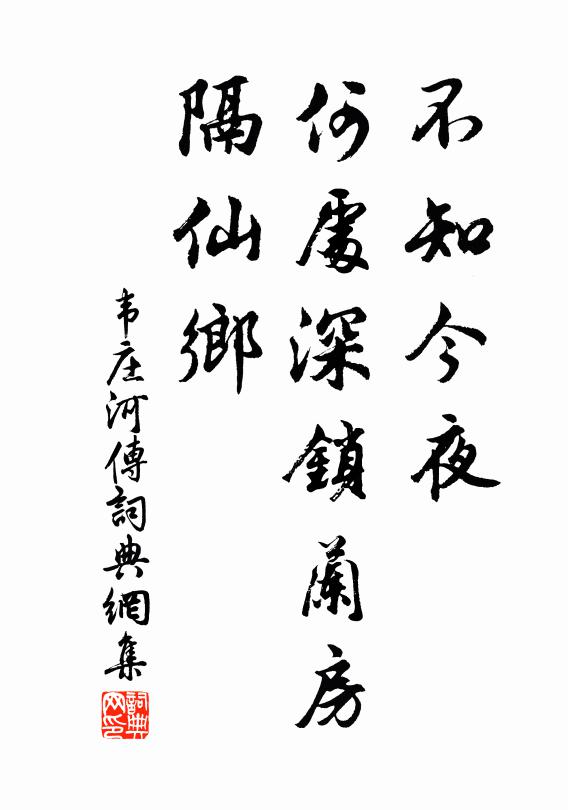 不知今夜
何處深鎖蘭房
隔仙鄉
韦庄河傳詞典網集
詞典网印